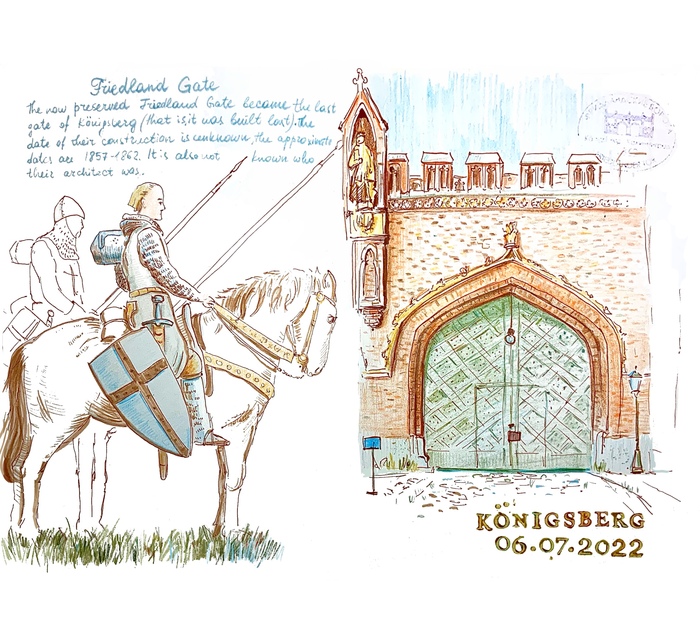 Friedland Gate
The now preserved Friedland Gate became the last
gate of Königsberg (that is, it was built last). The
date of their construction is unknown, the approximate
dates are 1857-1862. It is also not known who
their architect was.
KÖNIGSBERG
06.07.2022